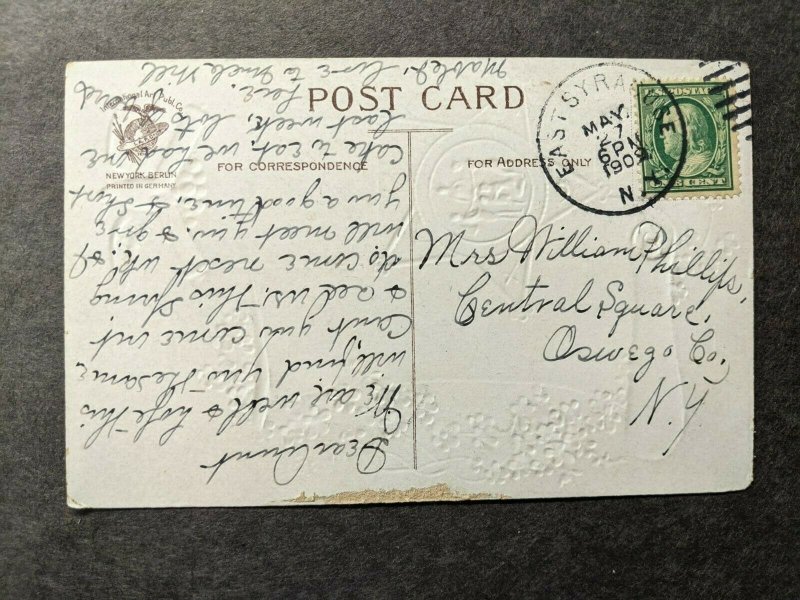 POST CARD
International Art Publ. Co.
NEW YORK BERLIN
PRINTED IN GERMANY
FOR CORRESPONDENCE
FOR ADDRESS ONLY
EAST SYRACUSE
N.Y.
MAY
27
6 PM
1909
U.S. POSTAGE
ONE CENT
Mrs William Phillips,
Central Square,
Oswego Co.
N.Y
Dear Aunt
We are well & hope this
will find you the same
Cant you come out
& see us. This Spring
do come next wk. &
will meet you. & give
you a good time, & Short
Cake to eat, we had one
last week, lots
Mabel. love to Uncle Will